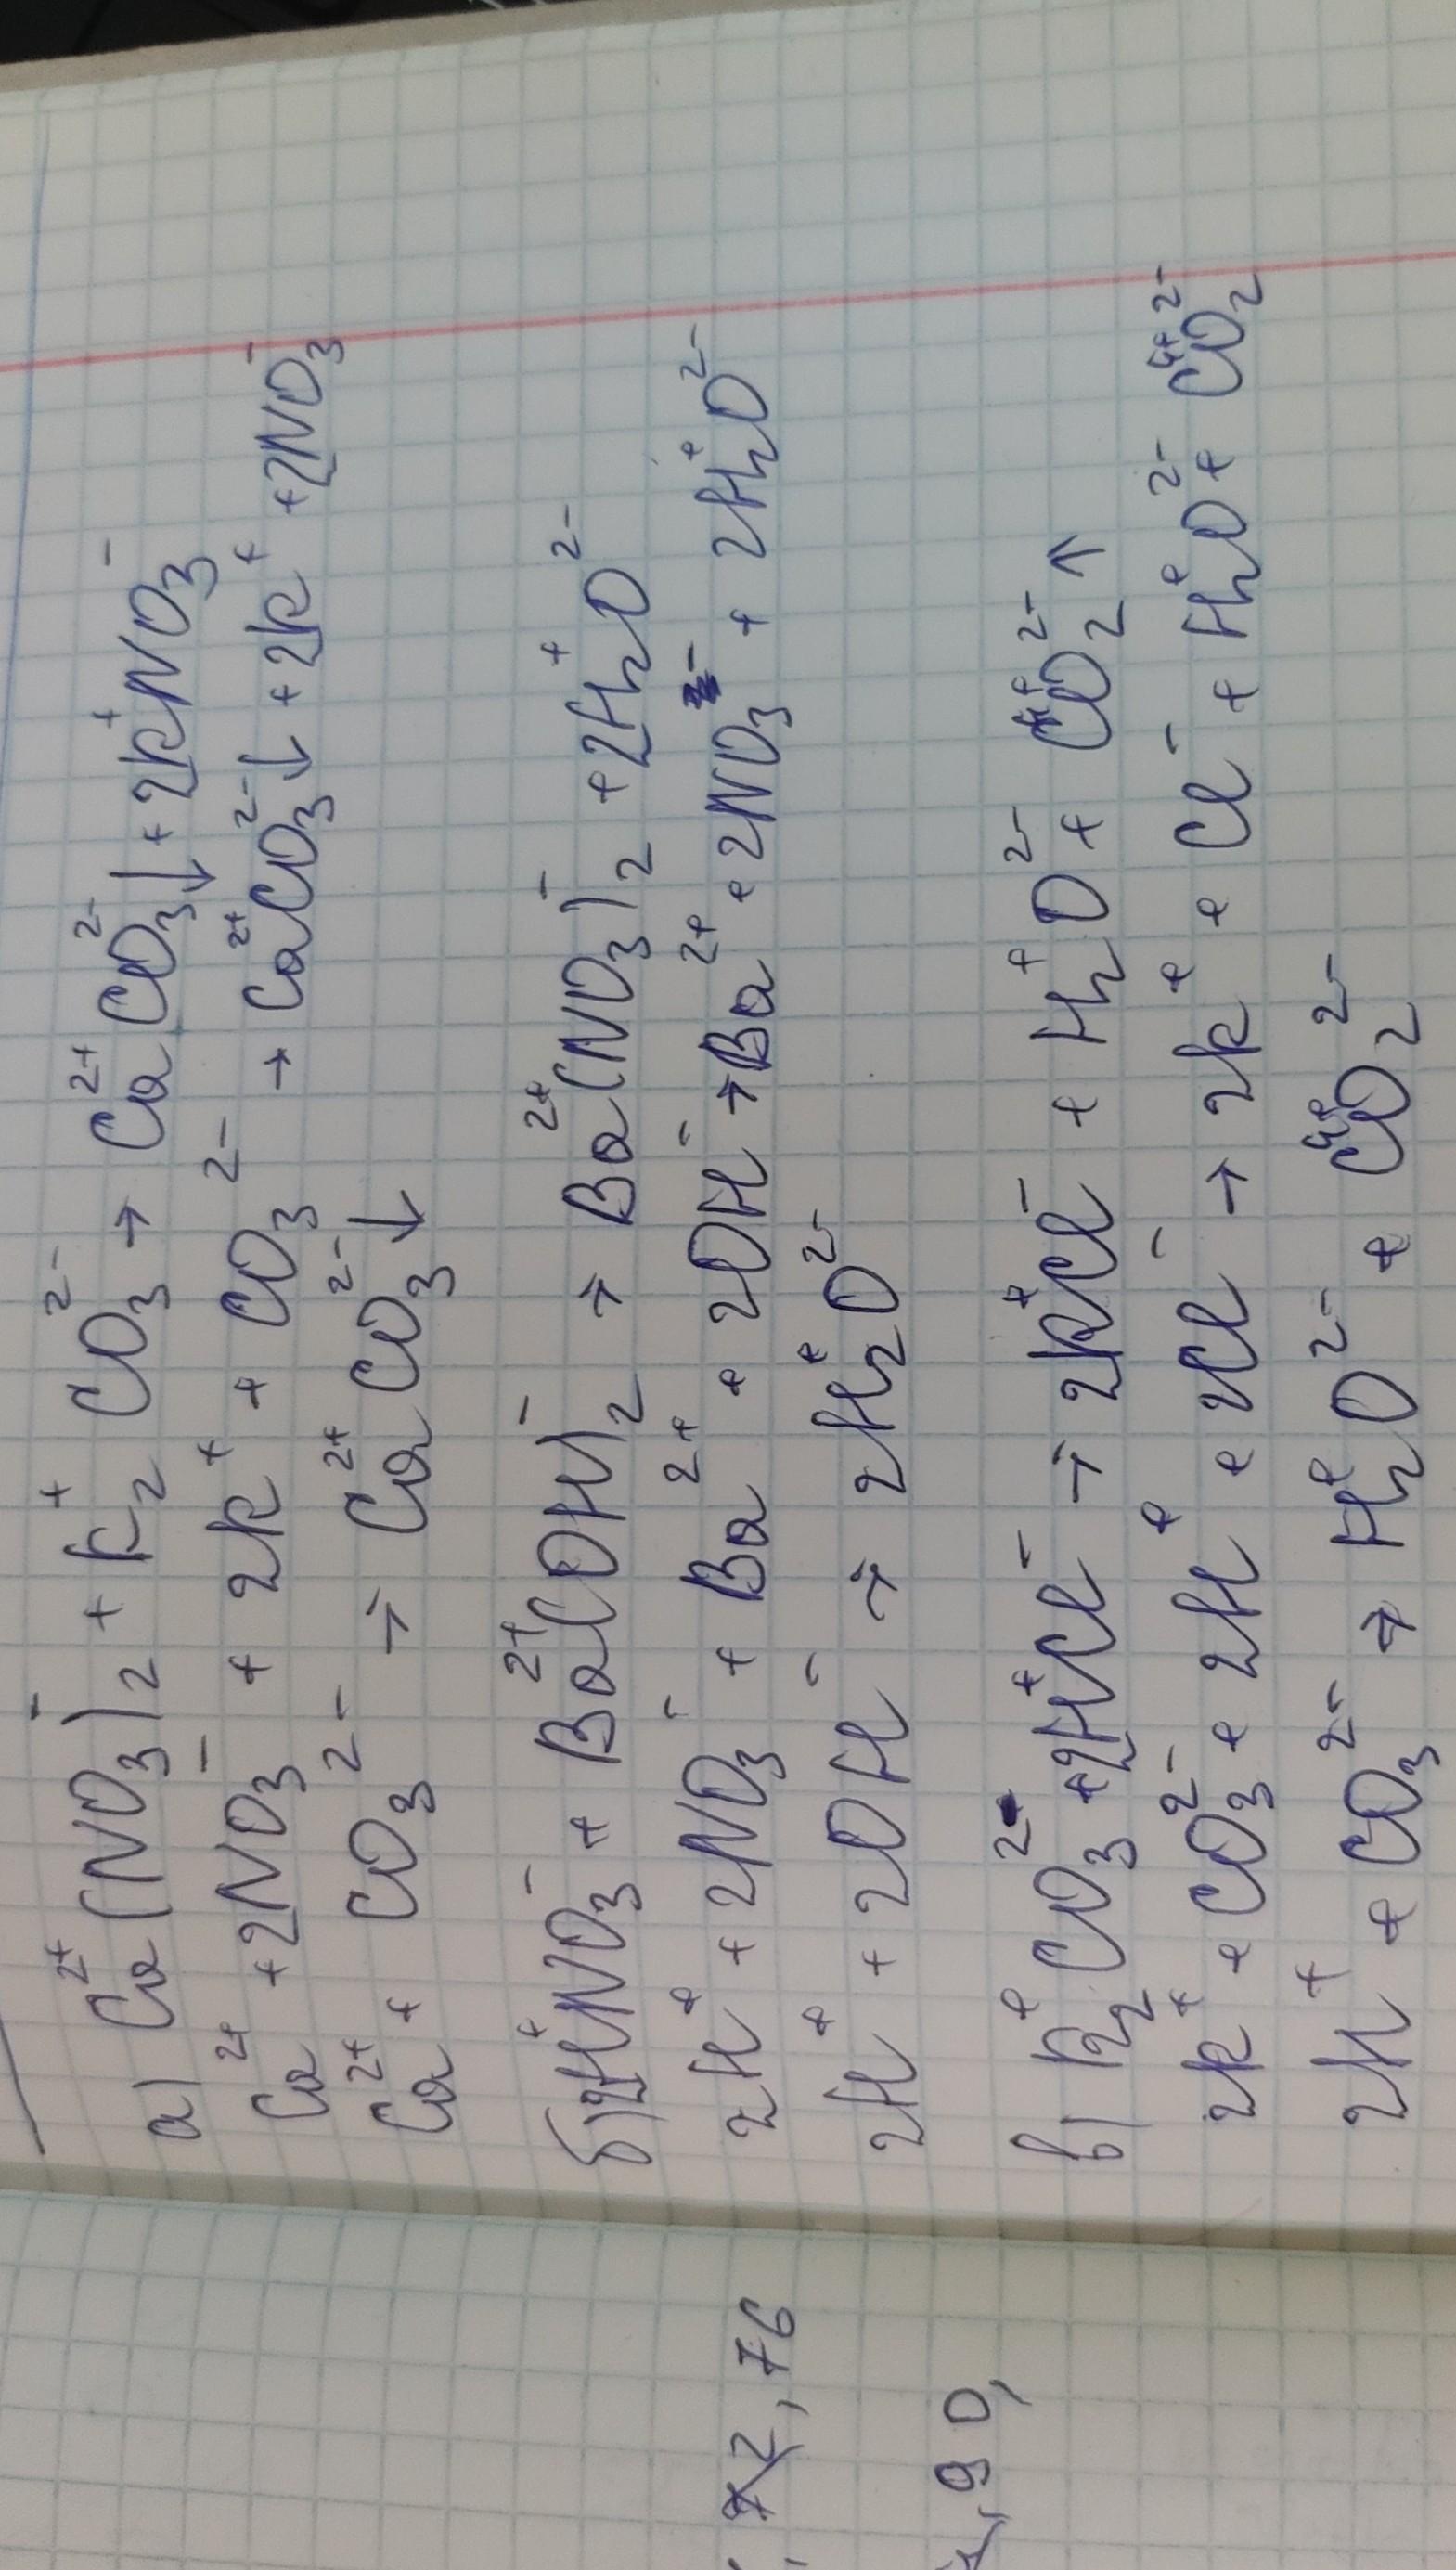 а) Ca²⁺(NO₃)₂⁻ + K₂⁺CO₃²⁻ → Ca²⁺CO₃²⁻↓ + 2K⁺NO₃⁻
Ca²⁺ + 2NO₃⁻ + 2K⁺ + CO₃²⁻ → Ca²⁺CO₃²⁻↓ + 2K⁺ + 2NO₃⁻
Ca²⁺ + CO₃²⁻ → Ca²⁺CO₃²⁻↓
б) 2H⁺NO₃⁻ + Ba²⁺(OH)₂⁻ → Ba²⁺(NO₃)₂⁻ + 2H₂⁺O²⁻
2H⁺ + 2NO₃⁻ + Ba²⁺ + 2OH⁻ → Ba²⁺ + 2NO₃⁻ + 2H₂⁺O²⁻
2H⁺ + 2OH⁻ → 2H₂⁺O²⁻
в) K₂⁺CO₃²⁻ + 2H⁺Cl⁻ → 2K⁺Cl⁻ + H₂⁺O²⁻ + C⁴⁺O₂²⁻↑
2K⁺ + CO₃²⁻ + 2H⁺ + 2Cl⁻ → 2K⁺ + Cl⁻ + H₂⁺O²⁻ + C⁴⁺O₂²⁻
2H⁺ + CO₃²⁻ → H₂⁺O²⁻ + C⁴⁺O₂²⁻
72, 76
90,